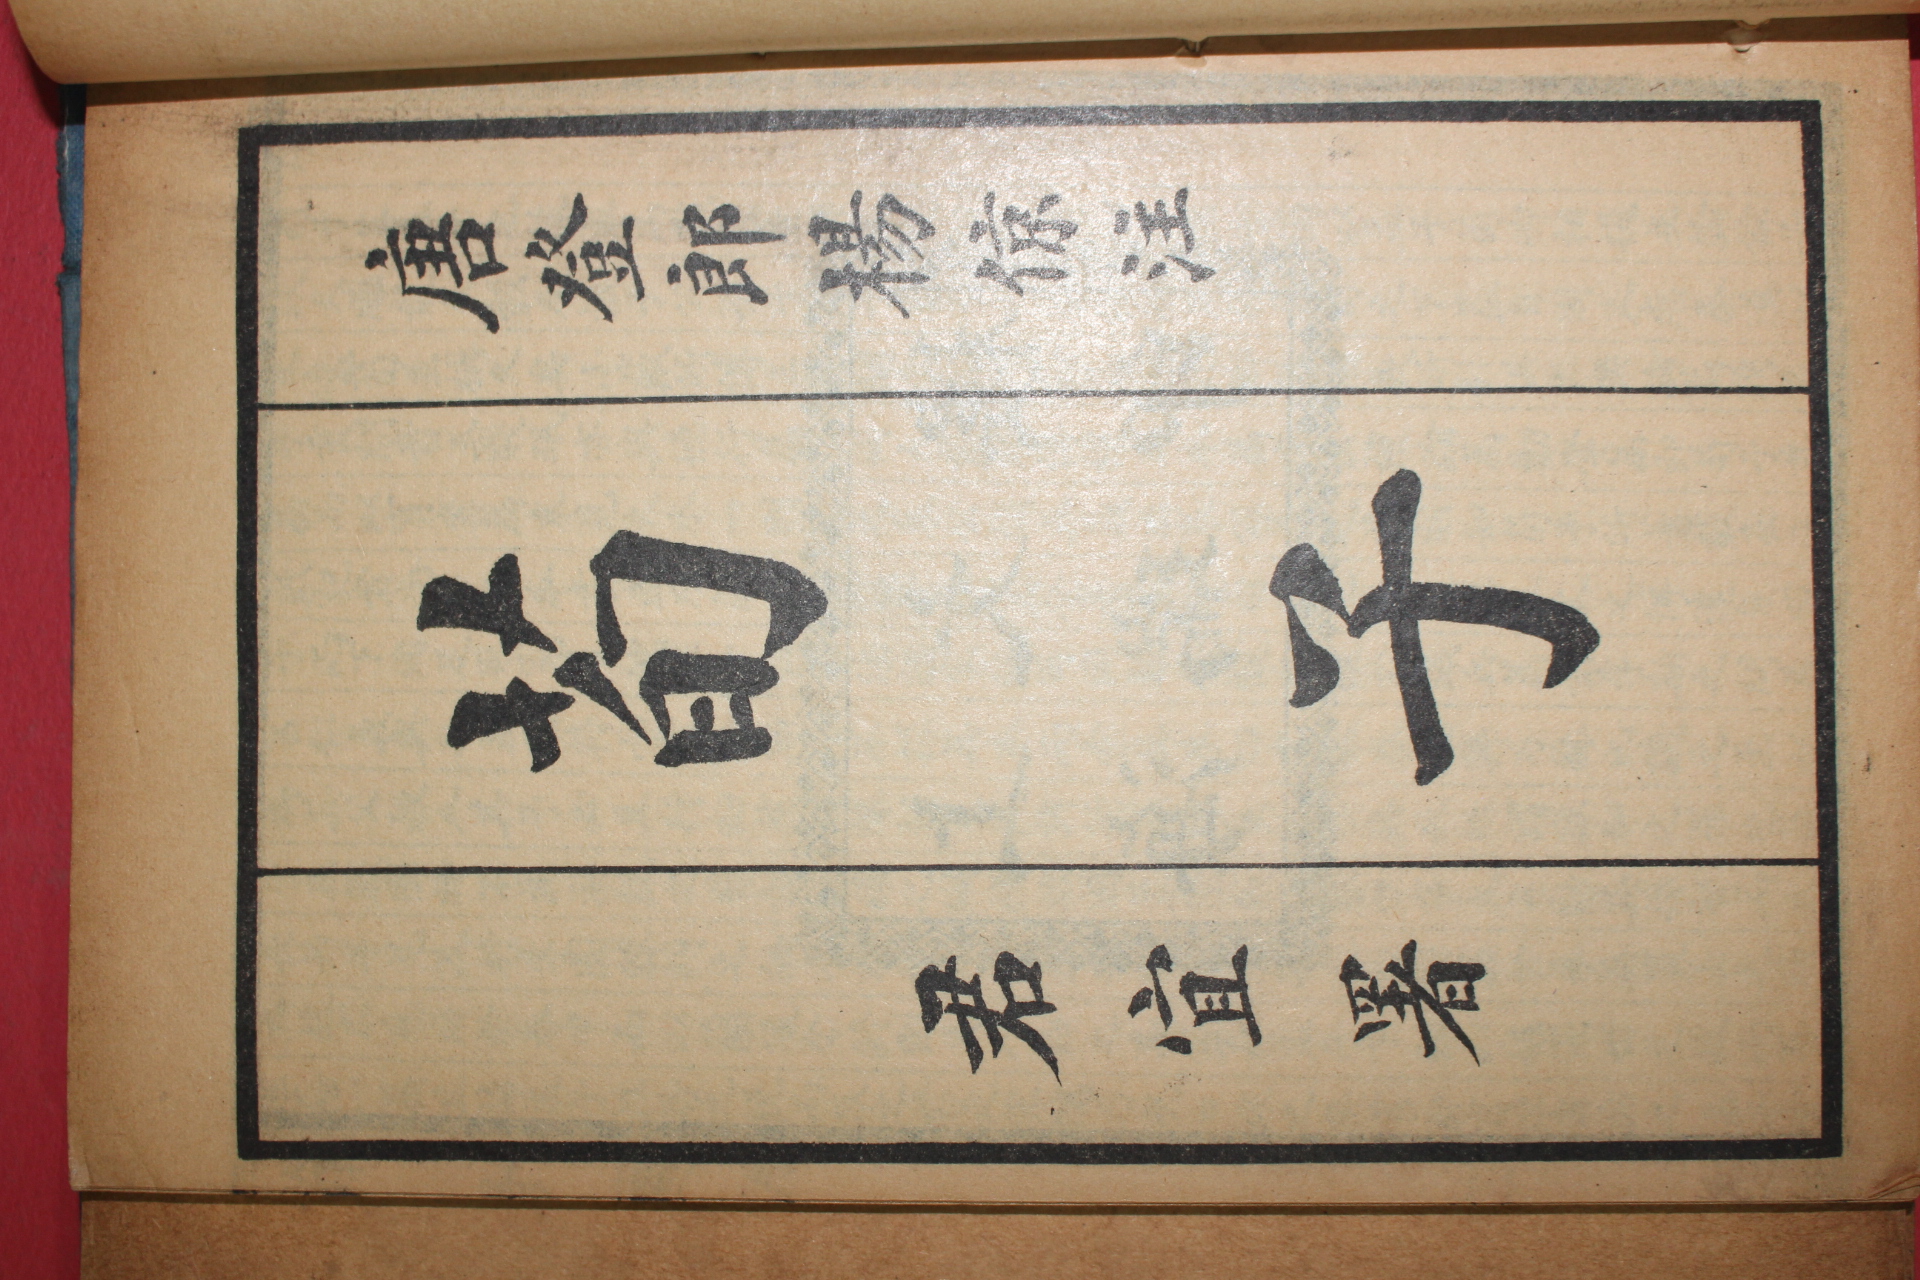 唐登郎楊倞注
荀子
君宜署